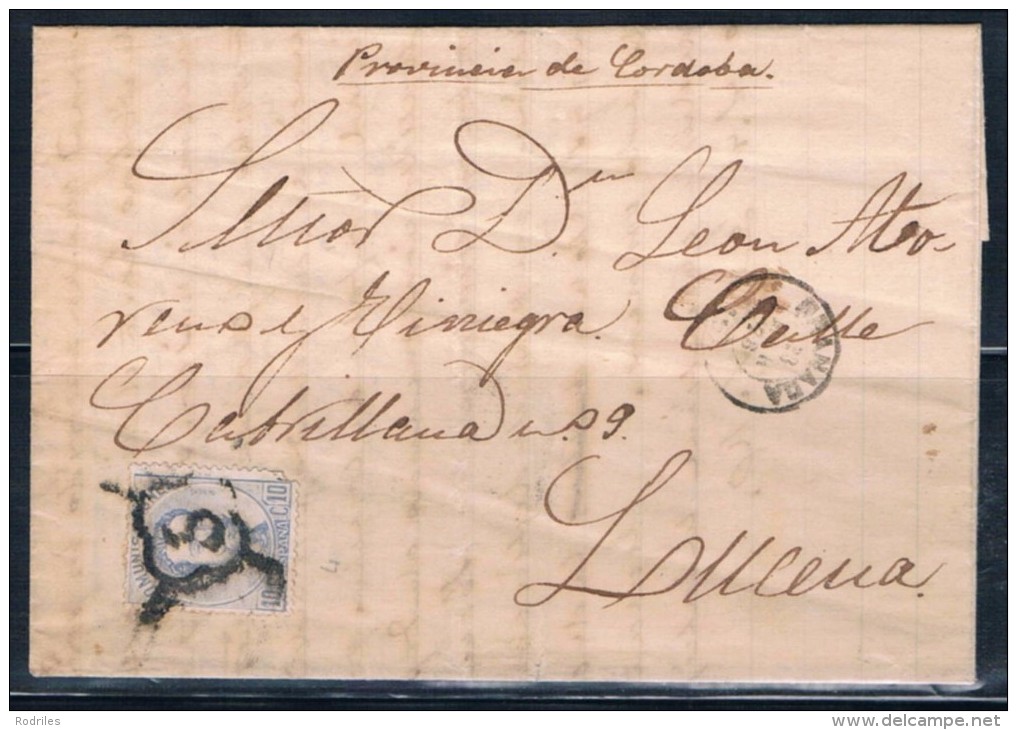 Provincia de Cordoba.
Señor Dn Leon Alo-
renso y Hiniegra. Calle
Cabrillana n.o 9.
Lucena.
GRANADA
10 C
10
5
Rodriles
www.delcampe.net